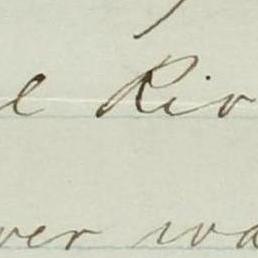 e Riv
ver wa